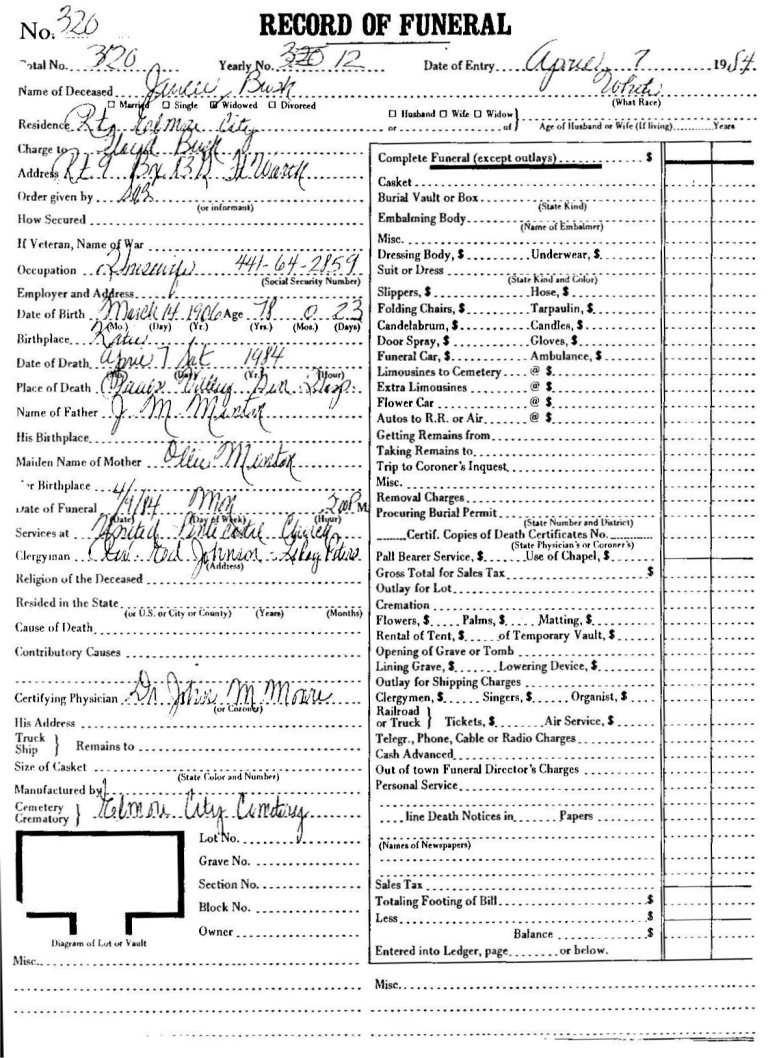 No. 320
RECORD OF FUNERAL
Total No. 320 Yearly No. 320 12 Date of Entry April 7 1984
Name of Deceased Bush White
(What Race)
☐ Married ☐ Single ☒ Widowed ☐ Divorced
☐ Husband ☐ Wife ☐ Widow } or of Age of Husband or Wife (If living) Years
Residence Elmore City
Charge to Floyd Bush
Address Rt 9 Box Ft Worth
Order given by
(or informant)
How Secured
If Veteran, Name of War
Occupation Housewife 441-64-2859
(Social Security Number)
Employer and Address
Date of Birth March 14 1906 Age 78 0 23
(Mo.) (Day) (Yr.) (Yrs.) (Mos.) (Days)
Birthplace Katie
Date of Death April 7 Sat 1984
(Mo.) (Day) (Yr.) (Hour)
Place of Death Pauls Valley Gen Hosp.
Name of Father J M Minton
His Birthplace
Maiden Name of Mother Ollie Minton
Her Birthplace
Date of Funeral 4/9/84 Mon 2:00 P M
(Date) (Day of Week) (Hour)
Services at United Pentecostal Church
Clergyman Rev. Johnson -
(Address)
Religion of the Deceased
Resided in the State
(or U.S. or City or County) (Years) (Months)
Cause of Death
Contributory Causes
Certifying Physician Dr John M Moore
(or Coroner)
His Address
Truck
Ship } Remains to
Size of Casket
(State Color and Number)
Manufactured by
Cemetery
Crematory } Elmore City Cemetery
Lot No.
Grave No.
Section No.
Block No.
Owner
Diagram of Lot or Vault
Misc.
Complete Funeral (except outlays) $
Casket
Burial Vault or Box
(State Kind)
Embalming Body
(Name of Embalmer)
Misc.
Dressing Body, $ Underwear, $
Suit or Dress
(State Kind and Color)
Slippers, $ Hose, $
Folding Chairs, $ Tarpaulin, $
Candelabrum, $ Candles, $
Door Spray, $ Gloves, $
Funeral Car, $ Ambulance, $
Limousines to Cemetery @ $
Extra Limousines @ $
Flower Car @ $
Autos to R.R. or Air @ $
Getting Remains from
Taking Remains to
Trip to Coroner's Inquest
Misc.
Removal Charges
Procuring Burial Permit
(State Number and District)
Certif. Copies of Death Certificates No.
(State Physician's or Coroner's)
Pall Bearer Service, $ Use of Chapel, $
Gross Total for Sales Tax $
Outlay for Lot
Cremation
Flowers, $ Palms, $ Matting, $
Rental of Tent, $ of Temporary Vault, $
Opening of Grave or Tomb
Lining Grave, $ Lowering Device, $
Outlay for Shipping Charges
Clergymen, $ Singers, $ Organist, $
Railroad
or Truck } Tickets, $ Air Service, $
Telegr., Phone, Cable or Radio Charges
Cash Advanced
Out of town Funeral Director's Charges
Personal Service
line Death Notices in Papers
(Names of Newspapers)
Sales Tax
Totaling Footing of Bill $
Less $
Balance $
Entered into Ledger, page or below.
Misc.